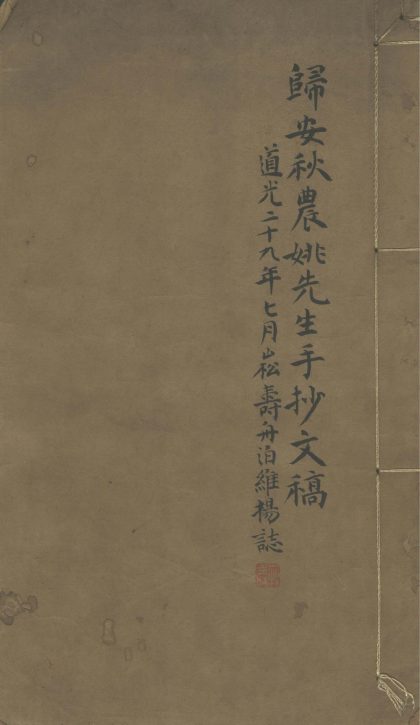 歸安秋農姚先生手抄文稿
道光二十九年七月崧壽舟泊維楊誌